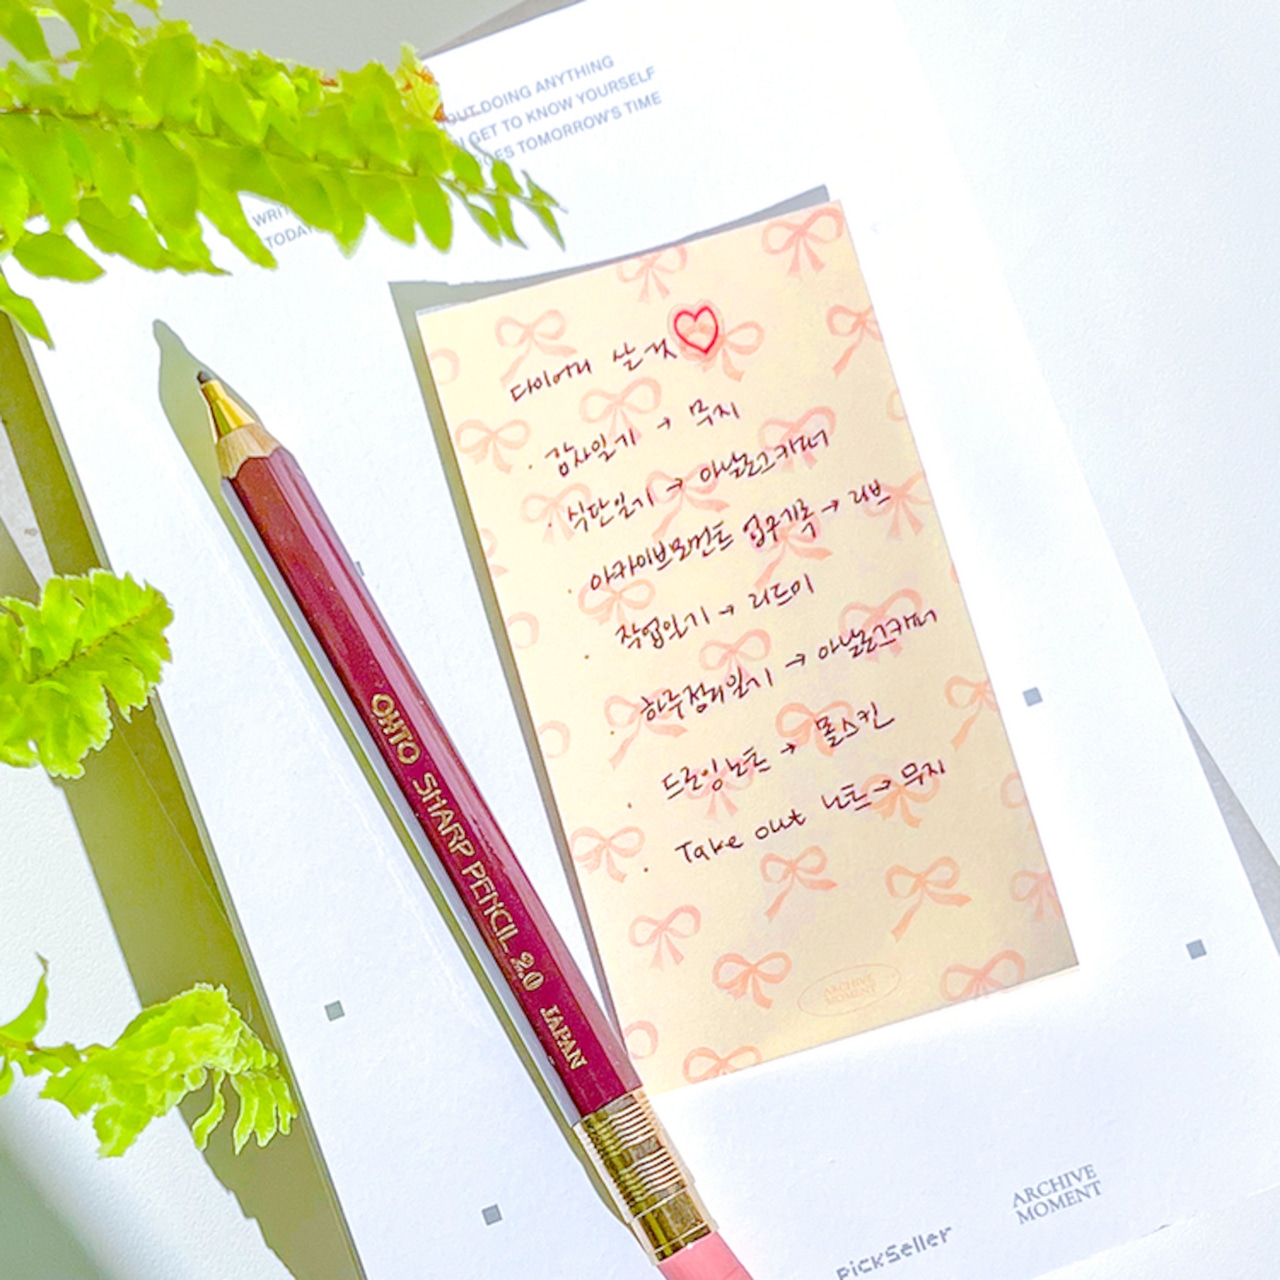 OUT DOING ANYTHING
GET TO KNOW YOURSELF
TOMORROW'S TIME
다이어리 살 것
· 감사일기 → 무지
· 식단일기 → 아날로그키퍼
· 아카이브모먼트 입구기록 → 러브
· 작업일기 → 리드미
· 하루정리일기 → 아날로그키퍼
· 드로잉노트 → 몰스킨
· Take out 노트 → 무지
ARCHIVE
MOMENT
OHTO SHARP PENCIL 2.0 JAPAN
ARCHIVE
MOMENT
PickSeller